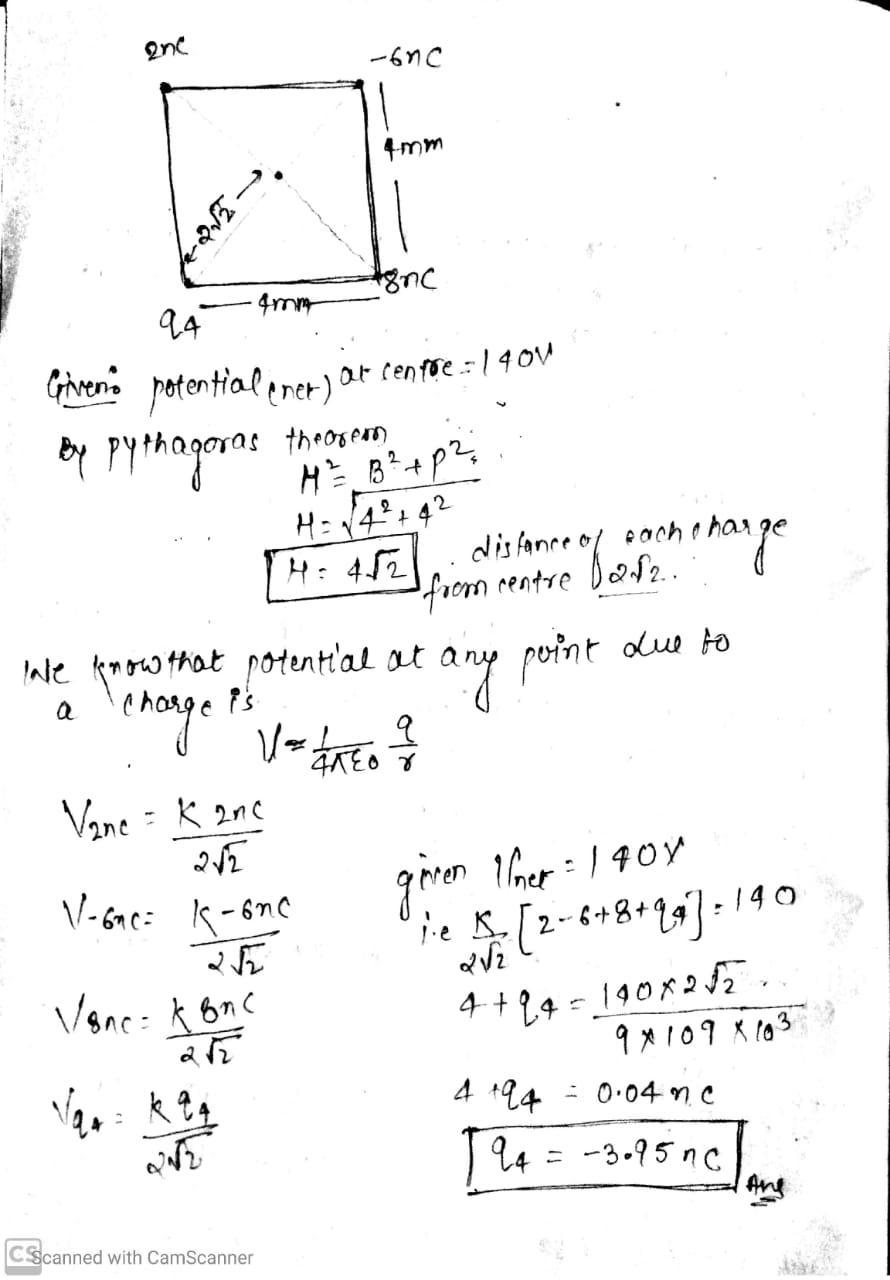 2nc
-6nC
4mm
2√2
+8nC
4mm
q4
Given: potential (net) at centre = 140V
By pythagoras theorem
H² = B² + P²
H = √4² + 4²
H = 4√2
distance of each charge
from centre 2√2.
We know that potential at any point due to
a charge is
V = 1/4πε0 q/r
V2nc = K 2nc / 2√2
V-6nc = K-6nc / 2√2
V8nc = K 8nC / 2√2
Vq4 = K q4 / 2√2
given Vnet = 140V
i.e K/2√2 [2-6+8+q4] = 140
4 + q4 = 140×2√2 / 9×109 × 10³
4 + q4 = 0.04 nc
q4 = -3.95 nC
Ans
CS Scanned with CamScanner